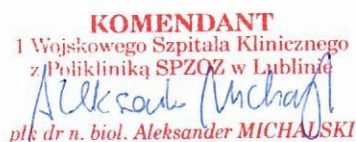 KOMENDANT
1 Wojskowego Szpitala Klinicznego
z Polikliniką SPZOZ w Lublinie
Aleksander Michalski
płk dr n. biol. Aleksander MICHALSKI